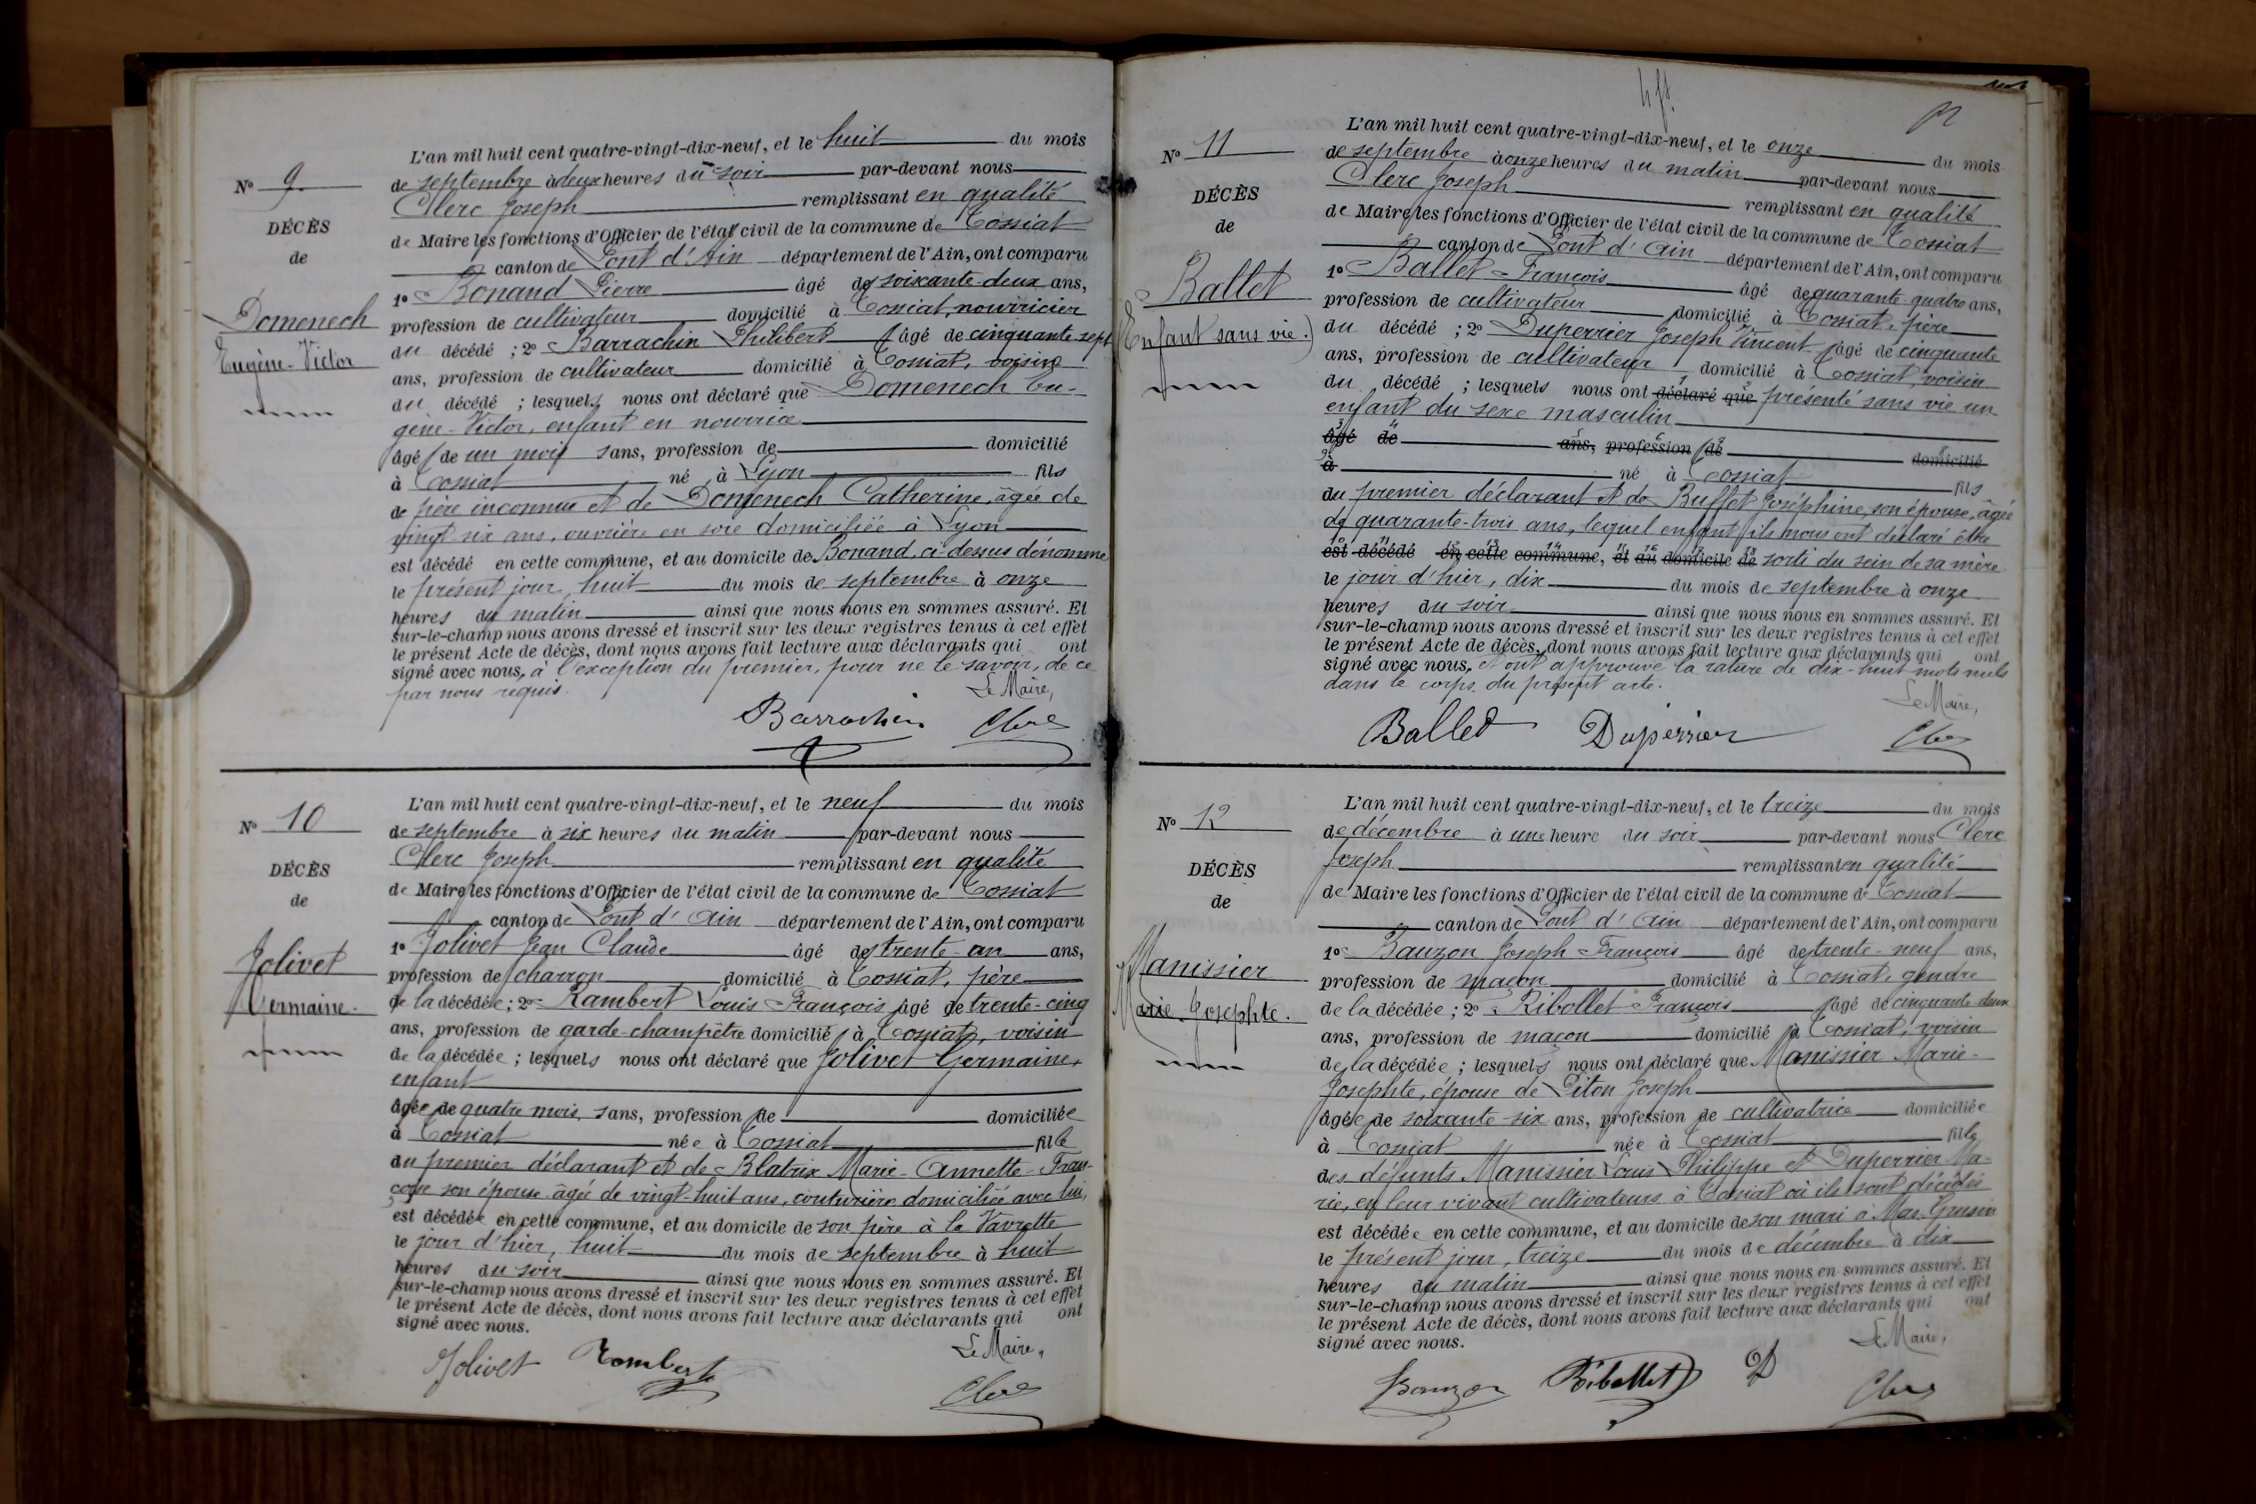 L'an mil huit cent quatre-vingt-dix-neuf, et le huit du mois
N° 9.
de septembre à deux heures du soir par-devant nous
Clerc Joseph remplissant en qualité
DÉCÈS
de Maire les fonctions d'Officier de l'état civil de la commune de Tossiat
de
canton de Pont d'Ain département de l'Ain, ont comparu
1° Bonand Pierre âgé de soixante-deux ans,
Domenech
profession de cultivateur domicilié à Tossiat, nourricier
du décédé ; 2° Barrachin Philibert âgé de cinquante-sept
Eugène-Victor
ans, profession de cultivateur domicilié à Tossiat, voisin
du décédé ; lesquels nous ont déclaré que Domenech Eu-
gène-Victor, enfant en nourrice
âgé de un mois sans, profession de domicilié
à Tossiat né à Lyon fils
de père inconnu et de Domenech Catherine, âgée de
vingt six ans, ouvrière en soie domiciliée à Lyon
est décédé en cette commune, et au domicile de Bonand, ci-dessus dénommé
le présent jour, huit du mois de septembre à onze
heures du matin ainsi que nous nous en sommes assuré. Et
sur-le-champ nous avons dressé et inscrit sur les deux registres tenus à cet effet
le présent Acte de décès, dont nous avons fait lecture aux déclarants qui ont
signé avec nous, à l'exception du premier, pour ne le savoir, de ce
par nous requis.
Le Maire,
Barrachin Clerc
L'an mil huit cent quatre-vingt-dix-neuf, et le neuf du mois
N° 10
de septembre à six heures du matin par-devant nous
Clerc Joseph remplissant en qualité
DÉCÈS
de Maire les fonctions d'Officier de l'état civil de la commune de Tossiat
de
canton de Pont d'Ain département de l'Ain, ont comparu
1° Jolivet Jean Claude âgé de trente-un ans,
Jolivet
profession de charron domicilié à Tossiat, père
Germaine.
de la décédée ; 2° Rambert Louis-François âgé de trente-cinq
ans, profession de garde-champêtre domicilié à Tossiat, voisin
de la décédée ; lesquels nous ont déclaré que Jolivet Germaine,
enfant
âgée de quatre mois, sans, profession de domiciliée
à Tossiat née à Tossiat fille
du premier déclarant et de Blatrix Marie-Annette-Fran-
çoise son épouse âgée de vingt-huit ans, couturière domiciliée avec lui,
est décédée en cette commune, et au domicile de son père à la Vavrette
le jour d'hier, huit du mois de septembre à huit
heures du soir ainsi que nous nous en sommes assuré. Et
sur-le-champ nous avons dressé et inscrit sur les deux registres tenus à cet effet
le présent Acte de décès, dont nous avons fait lecture aux déclarants qui ont
signé avec nous.
Le Maire,
Jolivet Rambert Clerc
L'an mil huit cent quatre-vingt-dix-neuf, et le onze du mois
N° 11
de septembre à onze heures du matin par-devant nous
Clerc Joseph remplissant en qualité
DÉCÈS
de Maire les fonctions d'Officier de l'état civil de la commune de Tossiat
de
canton de Pont d'Ain département de l'Ain, ont comparu
1° Ballet-François âgé de quarante-quatre ans,
Ballet
profession de cultivateur domicilié à Tossiat, père
(Enfant sans vie.)
du décédé ; 2° Duperrier Joseph Vincent âgé de cinquante
ans, profession de cultivateur domicilié à Tossiat, voisin
du décédé ; lesquels nous ont déclaré que présenté sans vie un
enfant du sexe masculin
âgé de ans, profession de domicilié
à né à Tossiat fils
du premier déclarant et de Buffet Joséphine, son épouse, âgée
de quarante-trois ans, lequel enfant ils nous ont déclaré être
est décédé en cette commune, et au domicile de sorti du sein de sa mère
le jour d'hier, dix du mois de septembre à onze
heures du soir ainsi que nous nous en sommes assuré. Et
sur-le-champ nous avons dressé et inscrit sur les deux registres tenus à cet effet
le présent Acte de décès, dont nous avons fait lecture aux déclarants qui ont
signé avec nous, et ont approuvé la rature de dix-huit mots nuls
dans le corps du présent acte.
Le Maire,
Ballet Duperrier Clerc
L'an mil huit cent quatre-vingt-dix-neuf, et le treize du mois
N° 12
de décembre à une heure du soir par-devant nous Clerc
Joseph remplissant en qualité
DÉCÈS
de Maire les fonctions d'Officier de l'état civil de la commune de Tossiat
de
canton de Pont d'Ain département de l'Ain, ont comparu
1° Bauzon Joseph-François âgé de trente-neuf ans,
Manissier
profession de maçon domicilié à Tossiat, gendre
Marie-Josephte.
de la décédée ; 2° Ribollet-François âgé de cinquante deux
ans, profession de maçon domicilié à Tossiat, voisin
de la décédée ; lesquels nous ont déclaré que Manissier Marie-
Josephte, épouse de Piton Joseph
âgée de soixante-six ans, profession de cultivatrice domiciliée
à Tossiat née à Tossiat fille
des défunts Manissier Louis Philippe et Duperrier Ma-
rie, en leur vivant cultivateurs à Tossiat où ils sont décédés
est décédée en cette commune, et au domicile de son mari à Mas
le présent jour, treize du mois de décembre à dix
heures du matin ainsi que nous nous en sommes assuré. Et
sur-le-champ nous avons dressé et inscrit sur les deux registres tenus à cet effet
le présent Acte de décès, dont nous avons fait lecture aux déclarants qui ont
signé avec nous.
Le Maire,
Bauzon Ribollet Clerc